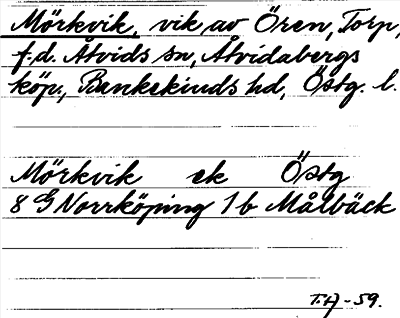 Mörkvik, vik av Ören, Torp,
f.d. Åtvids sn, Åtvidabergs
köp., Bankekinds hd, Östg. l.
Mörkvik ek Östg
8 G Norrköping 1 b Målbäck
T.H-59.